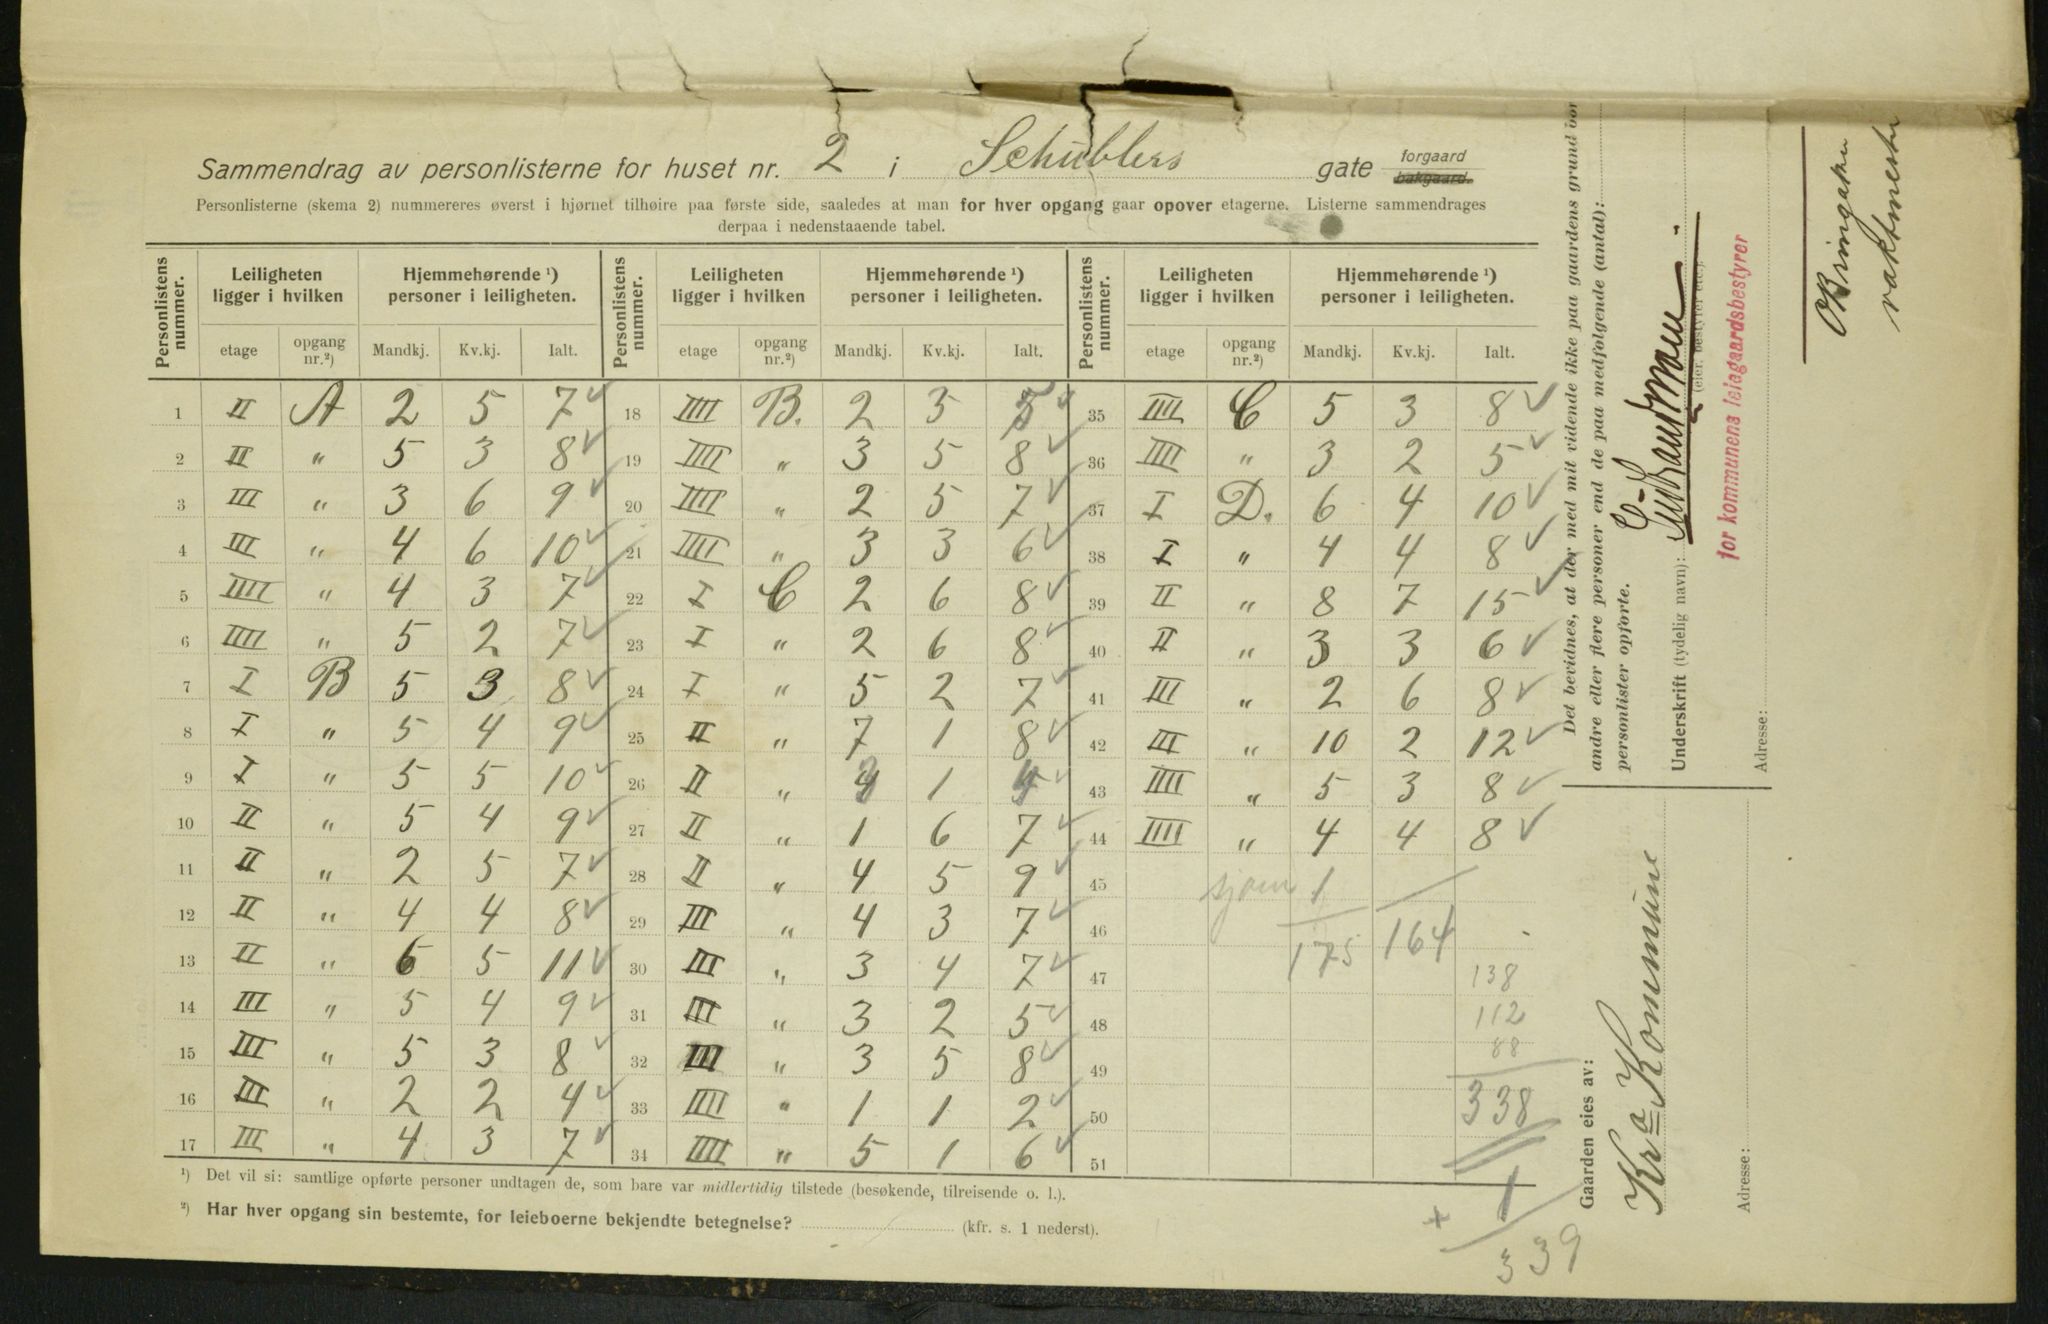 Sammendrag av personlisterne for huset nr. 2 i Schüblers gate forgaard bakgaard.
Personlisterne (skema 2) nummereres øverst i hjørnet tilhøire paa første side, saaledes at man for hver opgang gaar opover etagerne. Listerne sammendrages
derpaa i nedenstaaende tabel.
Personlistens nummer. Leiligheten ligger i hvilken Hjemmehørende ¹) personer i leiligheten. Personlistens nummer. Leiligheten ligger i hvilken Hjemmehørende ¹) personer i leiligheten. Personlistens nummer. Leiligheten ligger i hvilken Hjemmehørende ¹) personer i leiligheten.
etage opgang nr.²) Mandkj. Kv.kj. Ialt. etage opgang nr.²) Mandkj. Kv.kj. Ialt. etage opgang nr.²) Mandkj. Kv.kj. Ialt.
1 II A 2 5 7 18 IIII B. 2 3 5 35 IIII C 5 3 8
2 II " 5 3 8 19 IIII " 3 5 8 36 IIII " 3 2 5
3 III " 3 6 9 20 IIII " 2 5 7 37 I D. 6 4 10
4 III " 4 6 10 21 IIII " 3 3 6 38 I " 4 4 8
5 IIII " 4 3 7 22 I C 2 6 8 39 II " 8 7 15
6 IIII " 5 2 7 23 I " 2 6 8 40 II " 3 3 6
7 I B 5 3 8 24 I " 5 2 7 41 III " 2 6 8
8 I " 5 4 9 25 II " 7 1 8 42 III " 10 2 12
9 I " 5 5 10 26 II " 3 1 4 43 IIII " 5 3 8
10 II " 5 4 9 27 II " 1 6 7 44 IIII " 4 4 8
11 II " 2 5 7 28 II " 4 5 9 45 1
12 II " 4 4 8 29 III " 4 3 7 46
13 II " 6 5 11 30 III " 3 4 7 47 175 164 138
14 III " 5 4 9 31 III " 3 2 5 48 112
15 III " 5 3 8 32 III " 3 5 8 49 88
16 III " 2 2 4 33 IIII " 1 1 2 50 338
17 III " 4 3 7 34 IIII " 5 1 6 51
+ 1
339
¹) Det vil si: samtlige opførte personer undtagen de, som bare var midlertidig tilstede (besøkende, tilreisende o. l.).
²) Har hver opgang sin bestemte, for leieboerne bekjendte betegnelse? (kfr. s. 1 nederst).
Det bevidnes, at der med mit vidende ikke paa gaardens grund bor
andre eller flere personer end de paa medfølgende (antal):
personlister opførte.
Underskrift (tydelig navn):
(eier, bestyrer etc.)
for kommunens leiegaardsbestyrer
Adresse:
Gaarden eies av:
Kra Kommune
Adresse:
vaktmester